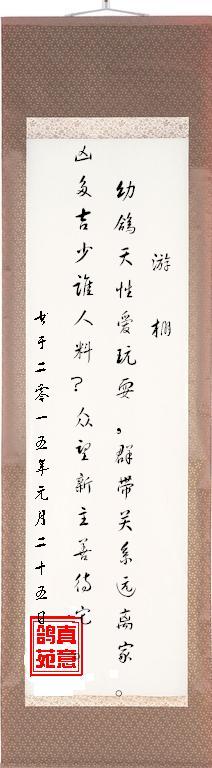 游棚
幼鸽天性爱玩耍,群带关系远离家。
凶多吉少谁人料?众望新主善待它
书于二零一五年元月二十五日
真意鸽苑